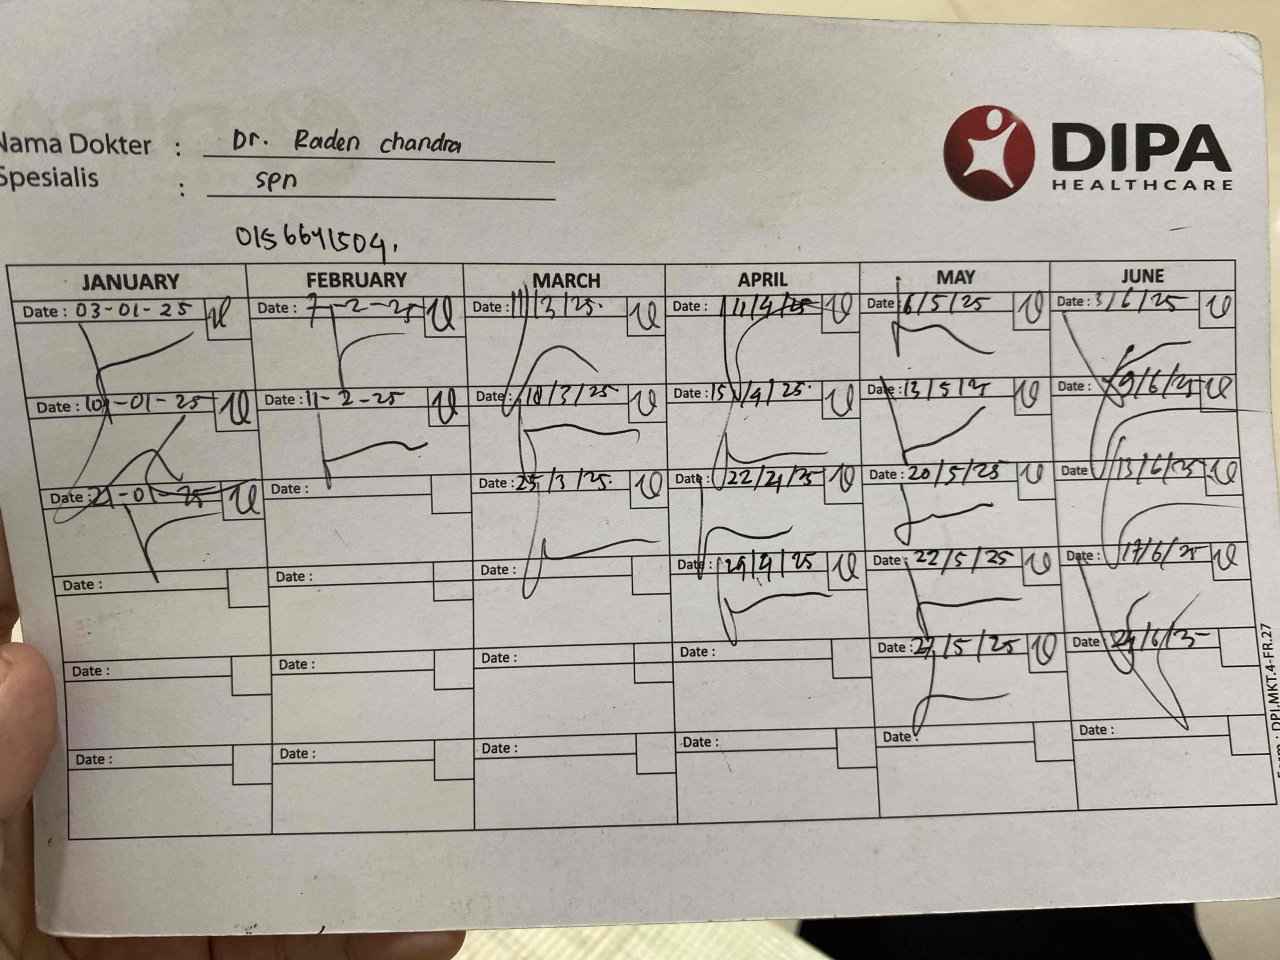 Nama Dokter : Dr. Raden chandra
Spesialis : spn
DIPA
HEALTHCARE
0156641504.
JANUARY FEBRUARY MARCH APRIL MAY JUNE
Date : 03-01-25 Date : 7-2-25 Date : 11/3/25. Date : 11/4/25 Date : 6/5/25 Date : 3/6/25
Date : 09-01-25 Date : 11-2-25 Date : 18/3/25. Date : 15/4/25. Date : 13/5/25 Date : 9/6/25
Date : 21-01-25 Date : Date : 25/3/25. Date : 22/4/25 Date : 20/5/25 Date : 13/6/25
Date : Date : Date : Date : 29/4/25 Date : 22/5/25 Date : 17/6/25
Date : Date : Date : Date : Date : 27/5/25 Date : 24/6/25
Date : Date : Date : Date : Date : Date :
Form : DPI.MKT.4-FR.27